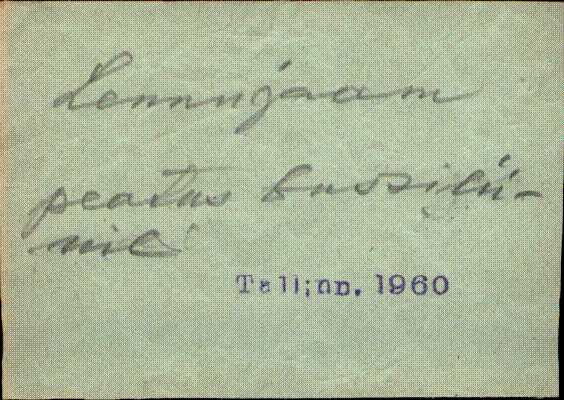 Lennujaam
peatus bussilii-
nil
Tallinn. 1960